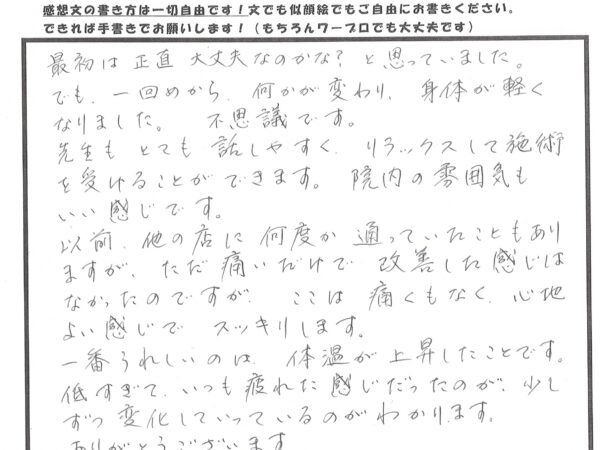 感想文の書き方は一切自由です！文でも似顔絵でもご自由にお書きください。
できれば手書きでお願いします！（もちろんワープロでも大丈夫です）
最初は正直 大丈夫なのかな？と思っていました。
でも、一回めから、何かが変わり、身体が軽く
なりました。 不思議です。
先生も とても 話しやすく、リラックスして施術
を受けることができます。 院内の雰囲気も
いい感じです。
以前、他の店に何度か通っていたこともあり
ますが、ただ痛いだけで 改善した感じは
なかったのですが、ここは痛くもなく、心地
よい感じで スッキリします。
一番うれしいのは、体温が上昇したことです。
低すぎて、いつも疲れた感じだったのが、少し
ずつ変化していっているのがわかります。
ありがとうございます